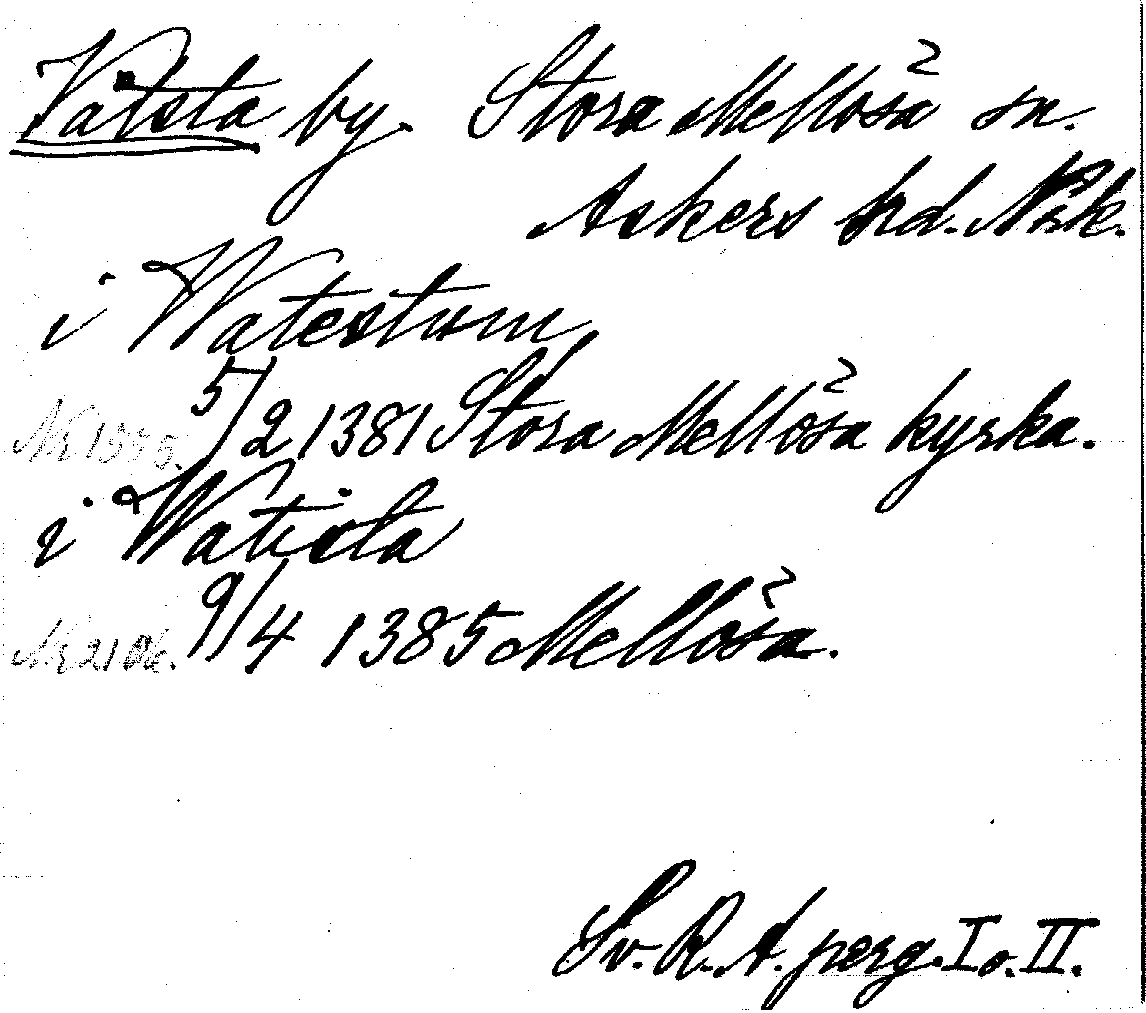 Våtsta by. Stora Mellösa sn.
Askers hrd. Närk.
i Watestum
5/2 1381 Stora Mellösa kyrka.
i Watista
9/4 1385 Mellösa.
Sv. R. A. perg. I o. II.